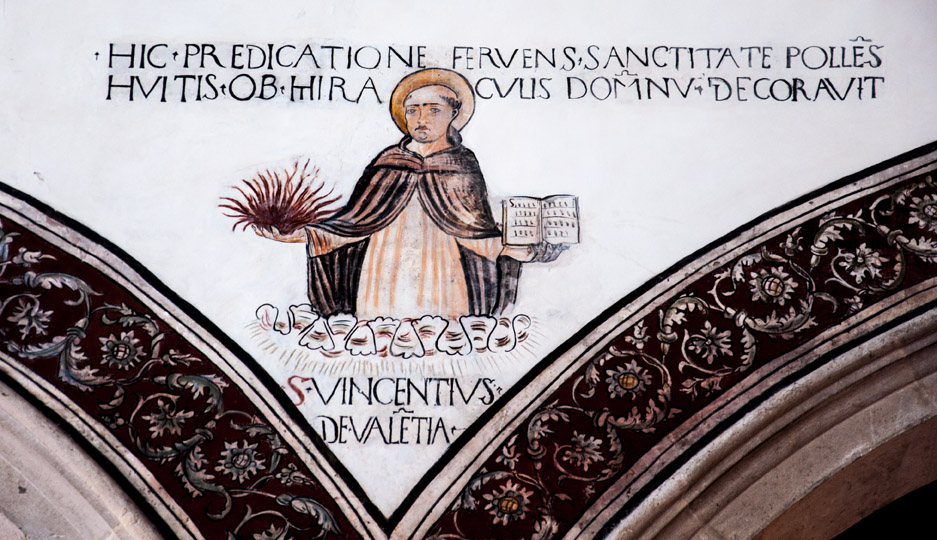 ·HIC·PREDICATIONE FERVENS·SANCTITATE POLLĒS
HVITIS·OB·HIRACVLIS DOM̄NV·DECORAVIT
S·VINCENTIVS·
DEVALĒTIA·